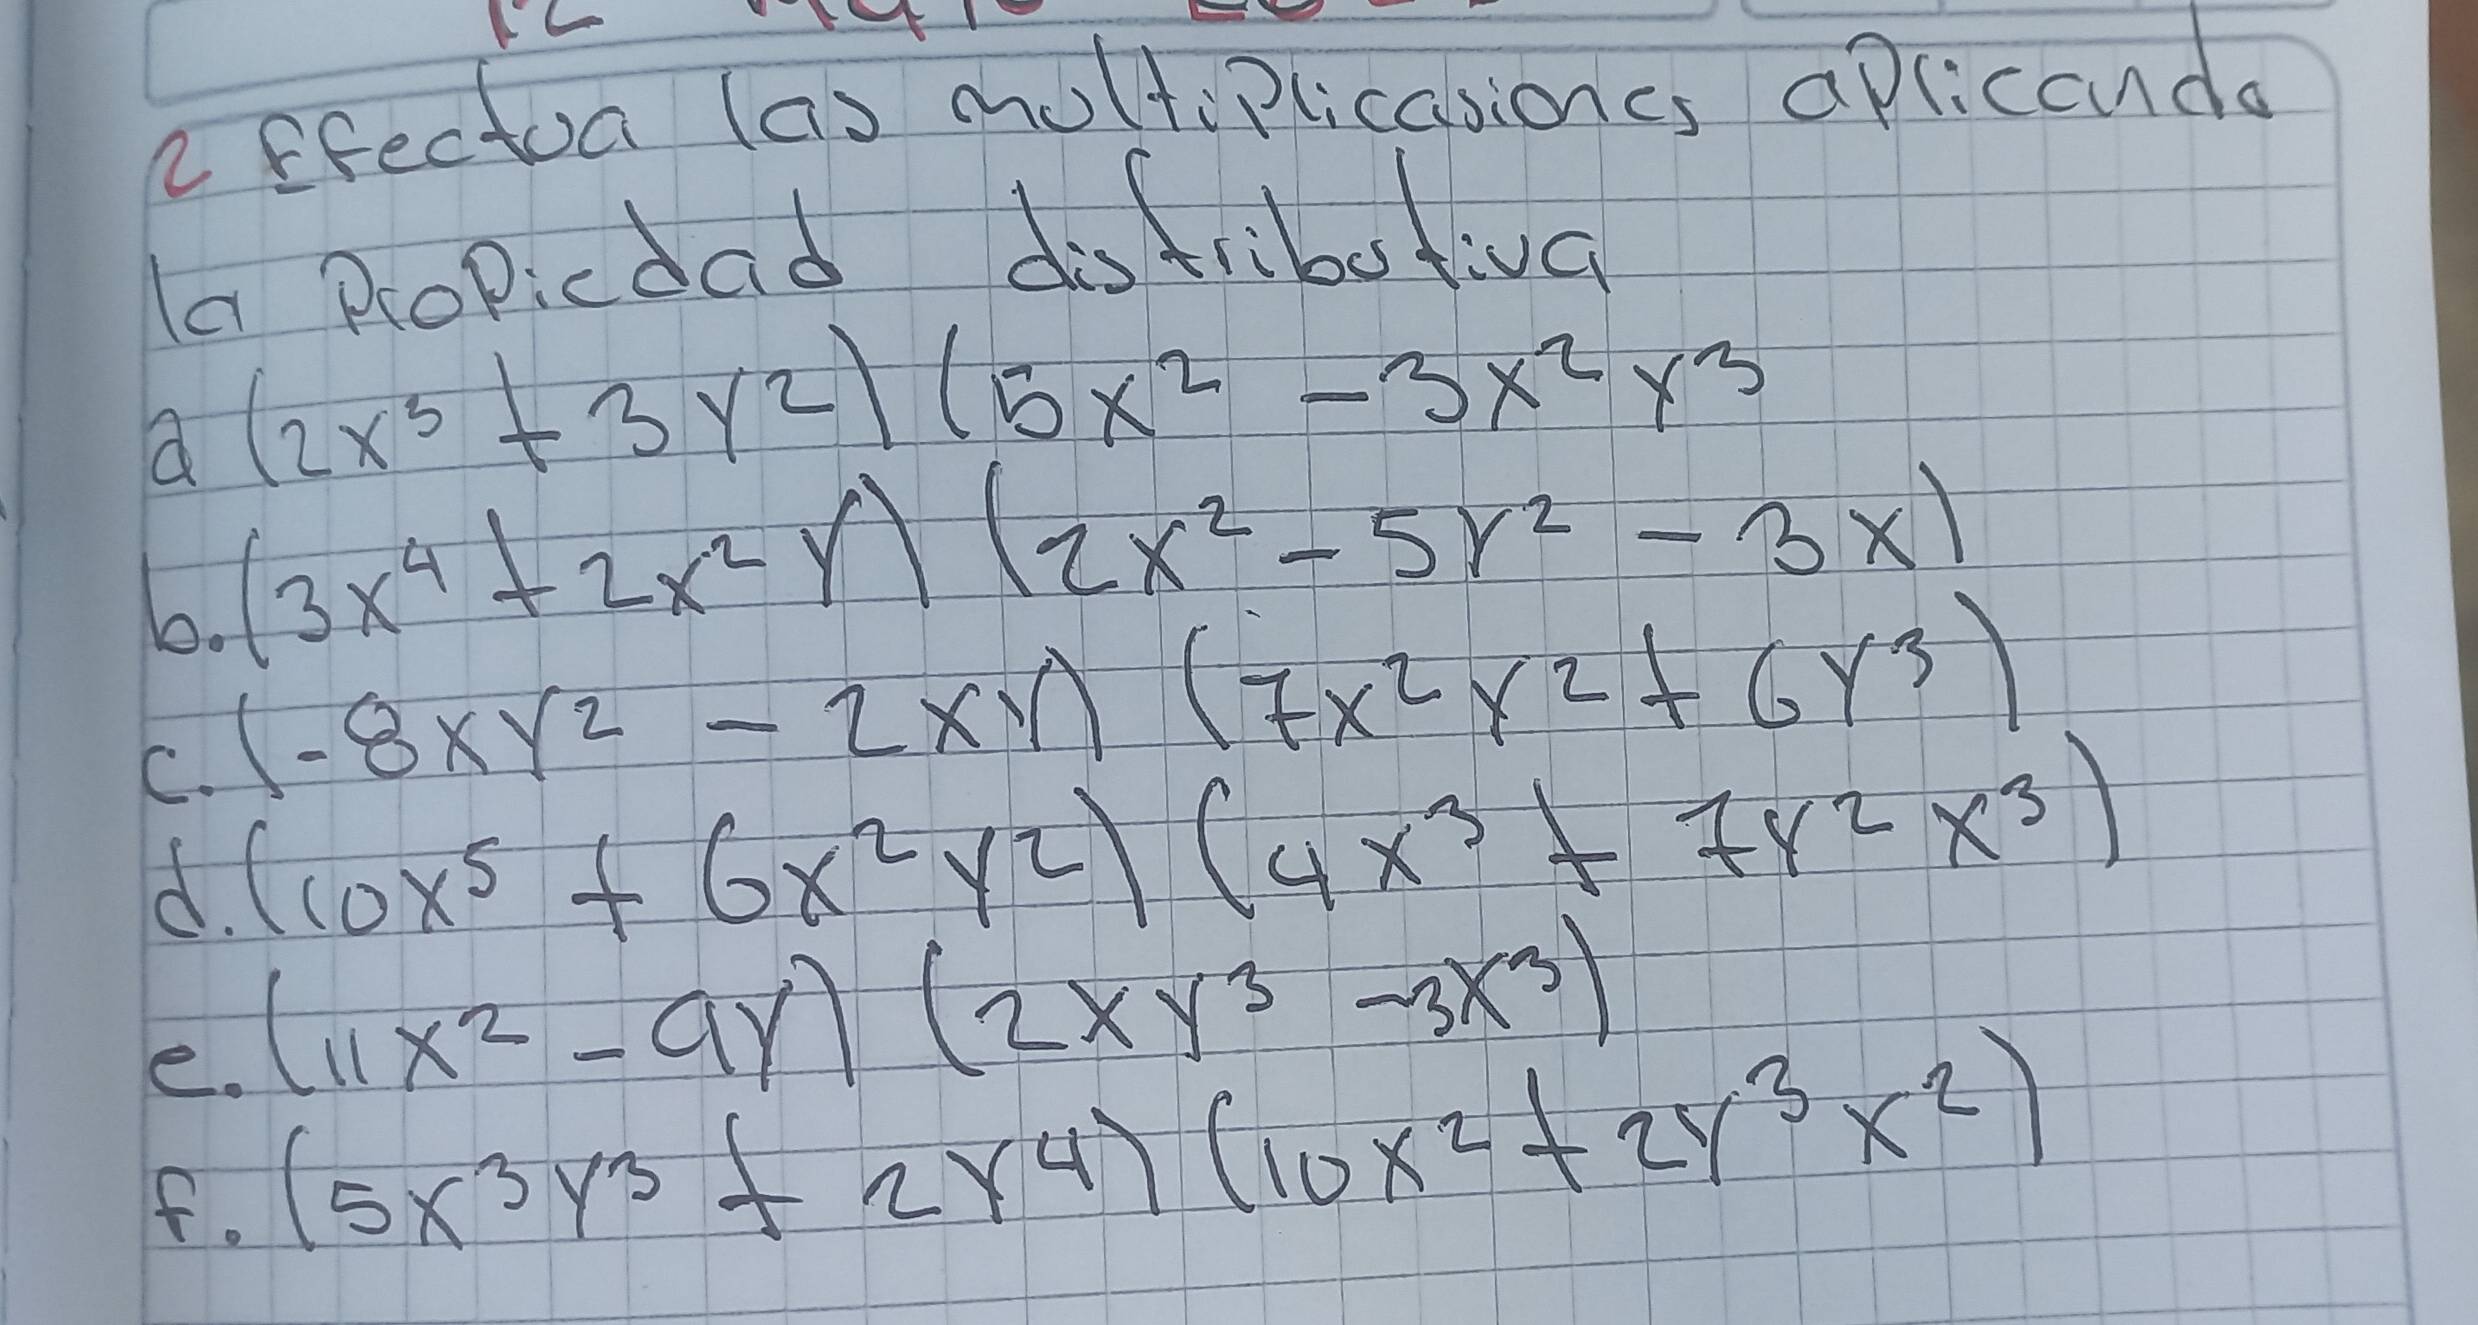 2 Efectua las multiplicasiones aplicando
la Propiedad distributiva
a (2x³ + 3y²) (5x² - 3x²y³
b. (3x⁴ + 2x²y) (2x² - 5y² - 3x)
c. (-8xy² - 2xy) (7x²y² + 6y³)
d. (10x⁵ + 6x²y²) (4x³ + 7y²x³)
e. (11x² - 9y) (2xy³ - 3x³)
f. (5x³y³ + 2y⁴) (10x² + 2y³x²)